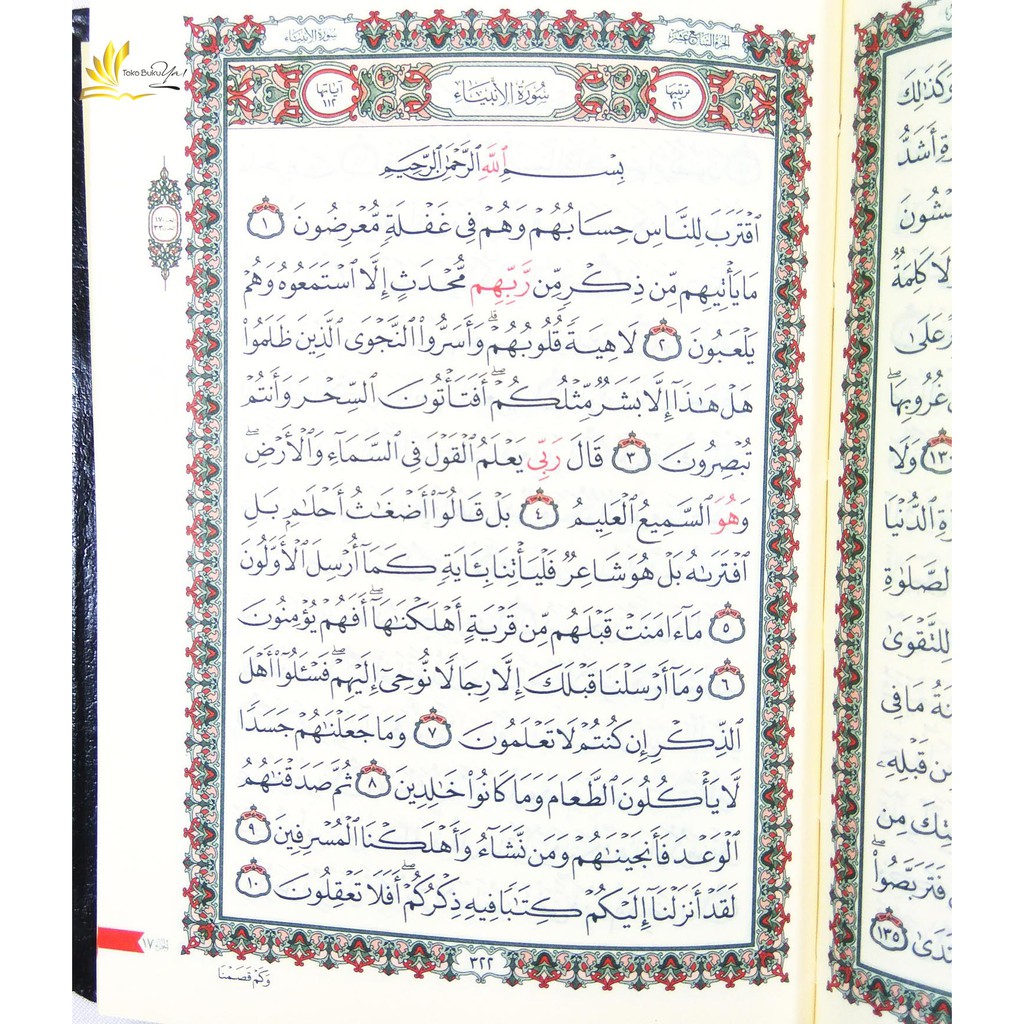 Toko Buku Ya!
الجزء السابع عشر
سورة الأنبياء
ترتيبها ٢١
سُورَةُ الأَنْبِيَاءِ
آياتها ١١٢
بِسْمِ اللَّهِ الرَّحْمَٰنِ الرَّحِيمِ
ٱقۡتَرَبَ لِلنَّاسِ حِسَابُهُمۡ وَهُمۡ فِي غَفۡلَةٖ مُّعۡرِضُونَ ١
مَا يَأۡتِيهِم مِّن ذِكۡرٖ مِّن رَّبِّهِم مُّحۡدَثٍ إِلَّا ٱسۡتَمَعُوهُ وَهُمۡ
يَلۡعَبُونَ ٢ لَاهِيَةٗ قُلُوبُهُمۡۗ وَأَسَرُّواْ ٱلنَّجۡوَى ٱلَّذِينَ ظَلَمُواْ
هَلۡ هَٰذَآ إِلَّا بَشَرٞ مِّثۡلُكُمۡۖ أَفَتَأۡتُونَ ٱلسِّحۡرَ وَأَنتُمۡ
تُبۡصِرُونَ ٣ قَالَ رَبِّي يَعۡلَمُ ٱلۡقَوۡلَ فِي ٱلسَّمَآءِ وَٱلۡأَرۡضِۖ
وَهُوَ ٱلسَّمِيعُ ٱلۡعَلِيمُ ٤ بَلۡ قَالُوٓاْ أَضۡغَٰثُ أَحۡلَٰمِۭ بَلِ
ٱفۡتَرَىٰهُ بَلۡ هُوَ شَاعِرٞ فَلۡيَأۡتِنَا بِـَٔايَةٖ كَمَآ أُرۡسِلَ ٱلۡأَوَّلُونَ
٥ مَآ ءَامَنَتۡ قَبۡلَهُم مِّن قَرۡيَةٍ أَهۡلَكۡنَٰهَآۖ أَفَهُمۡ يُؤۡمِنُونَ
٦ وَمَآ أَرۡسَلۡنَا قَبۡلَكَ إِلَّا رِجَالٗا نُّوحِيٓ إِلَيۡهِمۡۖ فَسۡـَٔلُوٓاْ أَهۡلَ
ٱلذِّكۡرِ إِن كُنتُمۡ لَا تَعۡلَمُونَ ٧ وَمَا جَعَلۡنَٰهُمۡ جَسَدٗا
لَّا يَأۡكُلُونَ ٱلطَّعَامَ وَمَا كَانُواْ خَٰلِدِينَ ٨ ثُمَّ صَدَقۡنَٰهُمُ
ٱلۡوَعۡدَ فَأَنجَيۡنَٰهُمۡ وَمَن نَّشَآءُ وَأَهۡلَكۡنَا ٱلۡمُسۡرِفِينَ ٩
لَقَدۡ أَنزَلۡنَآ إِلَيۡكُمۡ كِتَٰبٗا فِيهِ ذِكۡرُكُمۡۚ أَفَلَا تَعۡقِلُونَ ١٠
٣٢٢
الجزء ١٧
وَكَمۡ قَصَمۡنَا
وَكَذَٰلِكَ
أَشَدُّ
كَلِمَةٞ
عَلَىٰ
غُرُوبِهَاۖ
١٣٠ وَلَا
ٱلدُّنۡيَا
لِلتَّقۡوَىٰ
مَا فِي
قَبۡلِهِۦ
مِن
فَتَرَبَّصُواْۖ
١٣٥